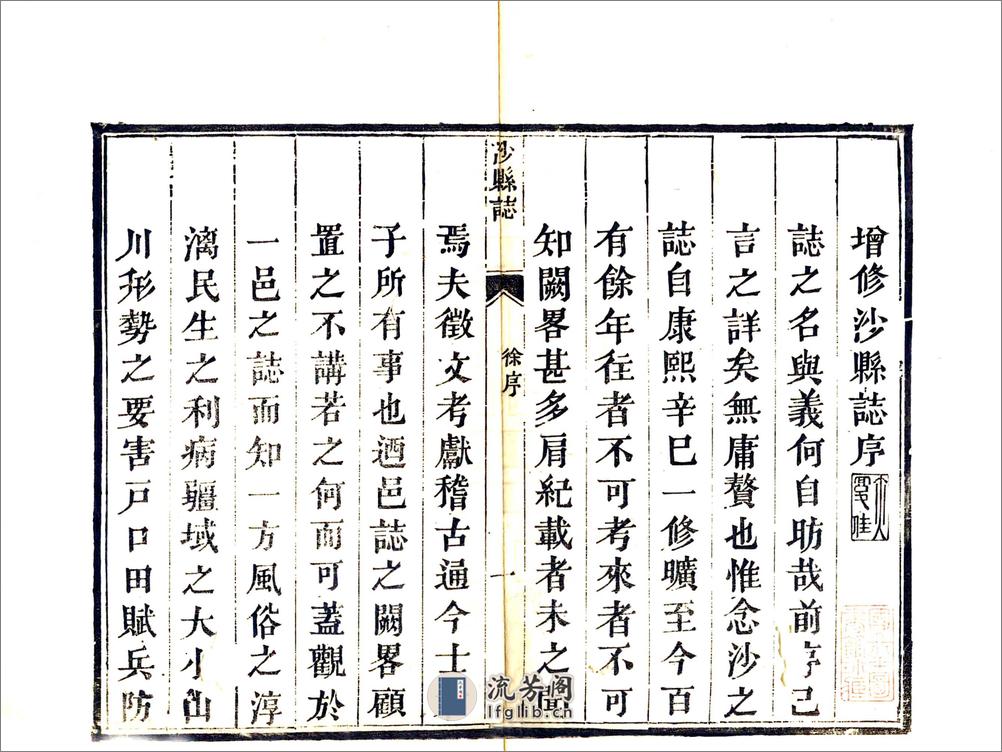 增修沙縣誌序
誌之名與義何自昉哉前序已
言之詳矣無庸贅也惟念沙之
誌自康熙辛巳一修曠至今百
有餘年往者不可考來者不可
知闕畧甚多肩紀載者未之聞
沙縣誌
徐序
一
焉夫徵文考獻稽古通今士君
子所有事也迺邑誌之闕畧顧
置之不講若之何而可蓋觀於
一邑之誌而知一方風俗之淳
漓民生之利病疆域之大小山
川形勢之要害戸口田賦兵防
流芳阁
lfglib.cn